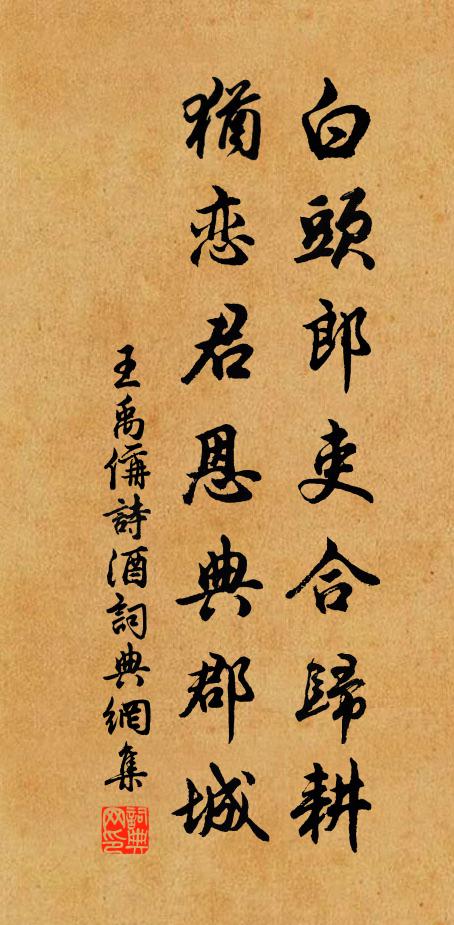 白頭郎吏合歸耕
猶恋君恩典郡城
王禹偁詩酒詞典網集
詞典網印